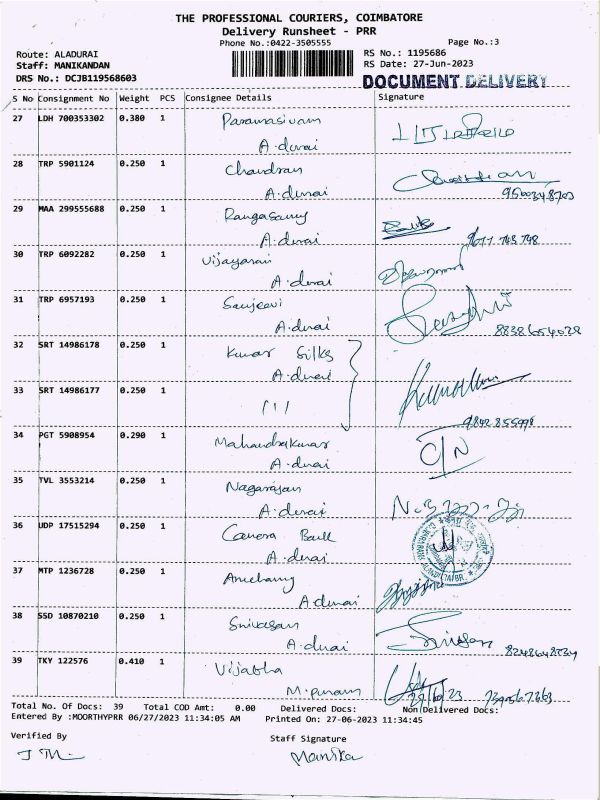 THE PROFESSIONAL COURIERS, COIMBATORE
Delivery Runsheet - PRR
Phone No.:0422-3505555
Page No.:3
Route: ALADURAI
RS No.: 1195686
Staff: MANIKANDAN
RS Date: 27-Jun-2023
DRS No.: DCJB119568603
DOCUMENT DELIVERY
S No Consignment No Weight PCS Consignee Details Signature
27 LDH 700353302 0.380 1 Paramasivam
A.durai
28 TRP 5901124 0.250 1 Chandran
A.durai
29 MAA 299555688 0.250 1 Rangasamy
A.durai
30 TRP 6092282 0.250 1
A.durai
31 TRP 6957193 0.250 1 Sanjeevi
A.durai
8838654028
32 SRT 14986178 0.250 1 Kumar Silks
A.durai
33 SRT 14986177 0.250 1
34 PGT 5908954 0.290 1 Mahandrakumar
A.durai
35 TVL 3553214 0.250 1 Nagarajan
A.durai
36 UDP 17515294 0.250 1 Canera Bank
A.durai
37 MTP 1236728 0.250 1
A durai
38 SSD 10870210 0.250 1 Srivasan
A.durai
39 TKY 122576 0.410 1
Total No. Of Docs: 39 Total COD Amt: 0.00 Delivered Docs: Non Delivered Docs:
Entered By :MOORTHYPRR 06/27/2023 11:34:05 AM Printed On: 27-06-2023 11:34:45
Verified By
Staff Signature
Manika